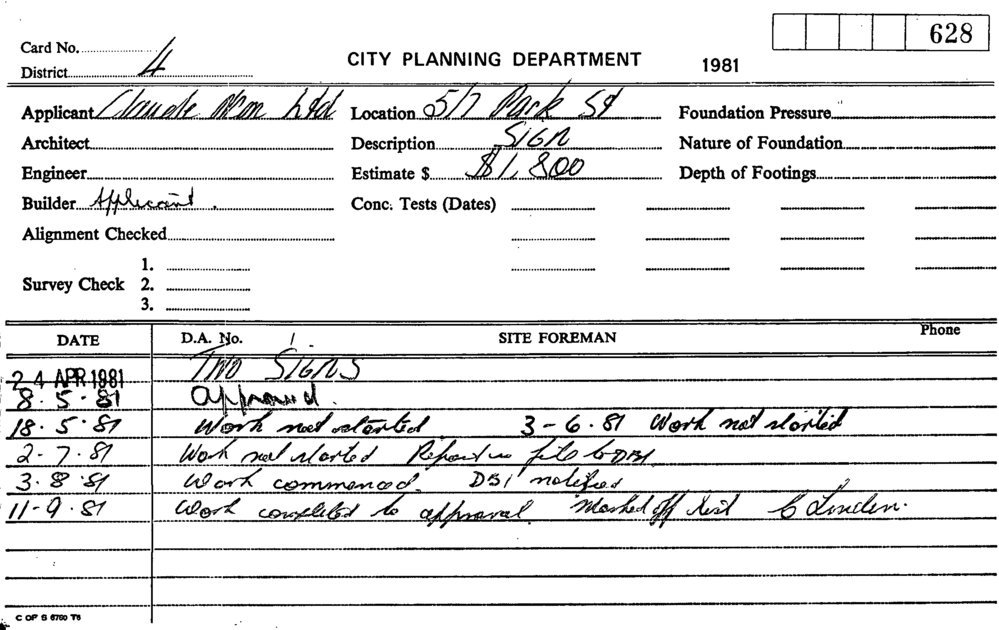 628
Card No.
District 4
CITY PLANNING DEPARTMENT 1981
Applicant Claude Neon Ltd Location 5/7 Park St Foundation Pressure
Architect Description SIGN Nature of Foundation
Engineer Estimate $ $1,800 Depth of Footings
Builder Applicant. Conc. Tests (Dates)
Alignment Checked
1.
Survey Check 2.
3.
DATE D.A. No. SITE FOREMAN Phone
24 APR 1981 TWO SIGNS
8.5.81 approved.
18.5.81 Work not started 3-6.81 Work not started
2-7.81 Work not started file to DBI
3.8.81 Work commenced. DBI notified
11-9.81 Work completed to approval. Marked off list C Linden.
C OF S 6760 T6